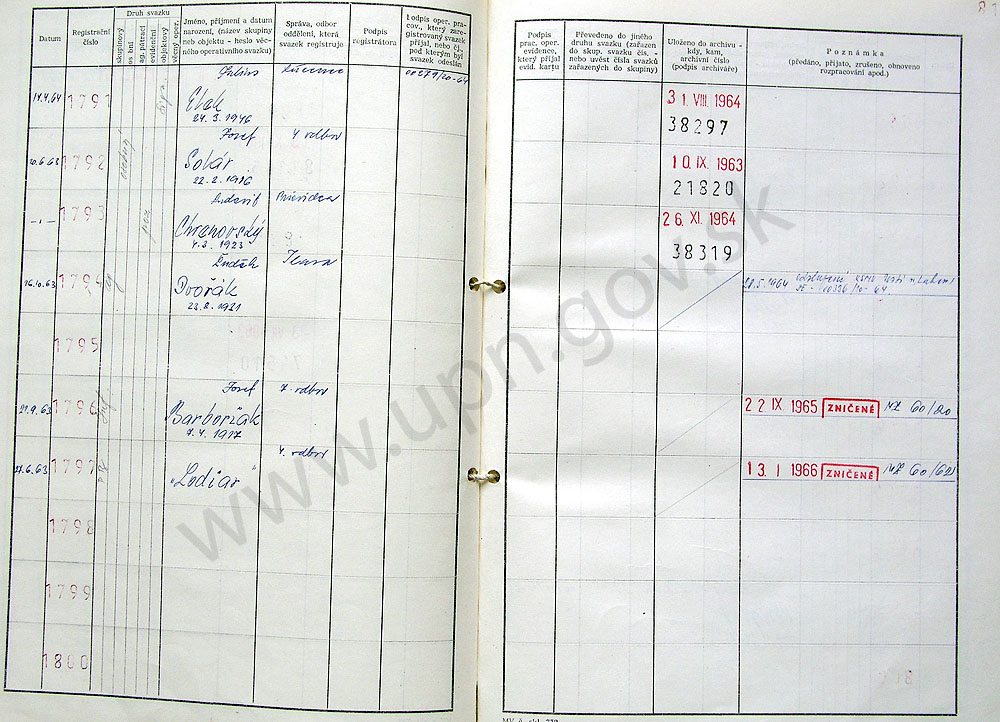 Datum
Registrační číslo
Druh svazku
skupinový
osobní
ag. pátrací
evidenční
objektový
věcný oper.
Jméno, příjmení a datum
narození, (název skupiny
neb objektu - heslo věc-
ného operativního svazku)
Správa, odbor
oddělení, která
svazek registruje
Podpis
registrátora
Podpis oper. pra-
cov., který zare-
gistrovaný svazek
přijal, nebo čj.
pod kterým byl
svazek odeslán
Podpis
prac. oper.
evidence,
který přijal
evid. kartu
Převedeno do jiného
druhu svazku (zařazen
do skup. svazku čís. -
nebo uvést čísla svazků
zařazených do skupiny)
Uloženo do archivu -
kdy, kam,
archivní číslo
(podpis archiváře)
Poznámka
(předáno, přijato, zrušeno, obnoveno
rozpracování apod.)
14.4.64 1791
24. 3. 1946
31. VIII. 1964
38297
Jozef 4. odbor
10.6.63 1792 Sokár
22. 2. 1916
10. IX. 1963
21820
Ludovít Prievidza
-"- 1793 Chranovský
4. 3. 1923
26. XI. 1964
38319
Ľudák Ilava
16.10.63 1794 Dvořák
23. 8. 1921
28.5.1964
1795
Jozef 7. odbor
21.9.63 1796 Barboriak
7. 4. 1917
22 IX 1965 ZNIČENÉ MZ 60/20
4. odbor
27.6.63 1797 "Lodiar"
13. I 1966 ZNIČENÉ MZ 60/62
1798
1799
1800
www.upn.gov.sk